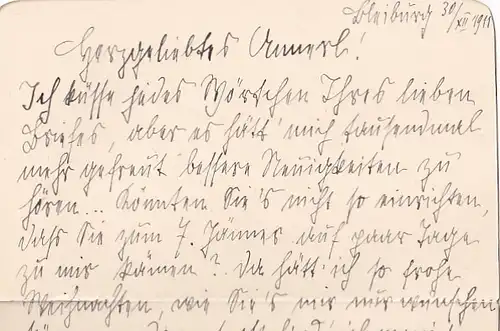 Bleiburg 30/XII 1911
Herzgeliebtes Annerl!
Ich küsse jedes Wörtchen Ihres lieben
Briefes, aber es hätt' mich tausendmal
mehr gefreut bessere Neuigkeiten zu
hören... Könnten Sie's nicht so einrichten,
dass Sie zum 7. Jänner auf paar Tage
zu mir kämen? Da hätt' ich so frohe
Weihnachten, wie Sie's mir nur wünschen